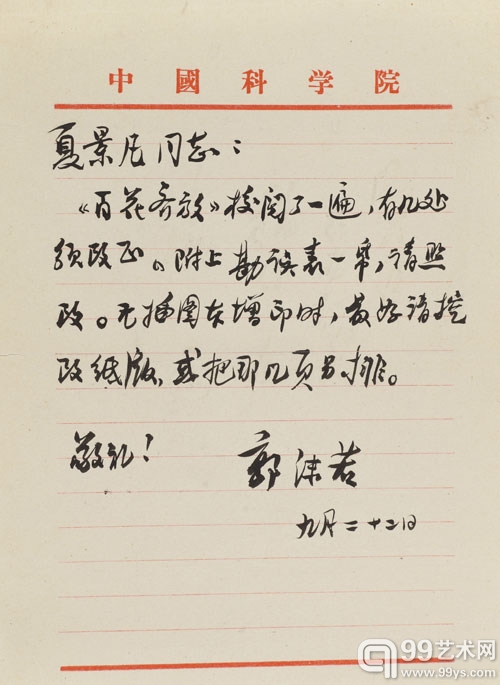 中國科学院
夏景凡同志：
《百花齐放》校阅了一遍，有几处
须改正。附上勘误表一纸，请照
改。无插图本增印时，最好请挖
改纸版，或把那几页另排。
敬礼！
郭沫若
九月二十二日
99艺术网
www.99ys.com